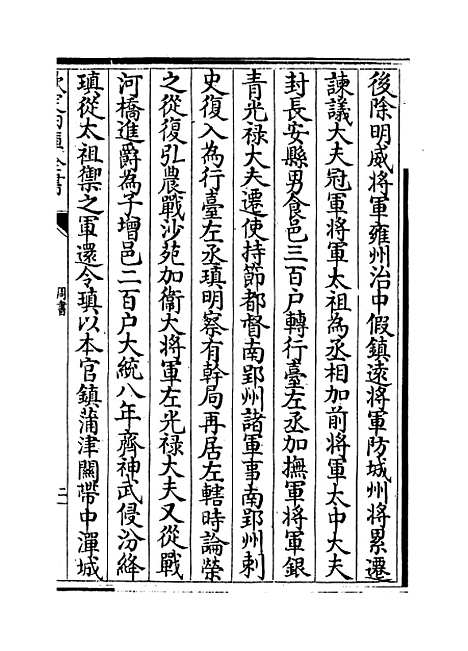 後除明威將軍雍州治中假鎮遠將軍防城州將累遷
諫議大夫冠軍將軍太祖為丞相加前將軍太中大夫
封長安縣男食邑三百户轉行臺左丞加撫軍將軍銀
青光禄大夫遷使持節都督南郢州諸軍事南郢州刺
史復入為行臺左丞瑱明察有幹局再居左轄時論榮
之從復弘農戰沙苑加衛大將軍左光禄大夫又從戰
河橋進爵為子增邑二百户大統八年齊神武侵汾絳
瑱從太祖禦之軍還令瑱以本官鎮蒲津關帶中潬城
周書
二